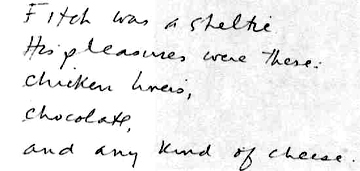 Fitch was a sheltie
His pleasures were these:
chicken livers,
chocolate,
and any kind of cheese.